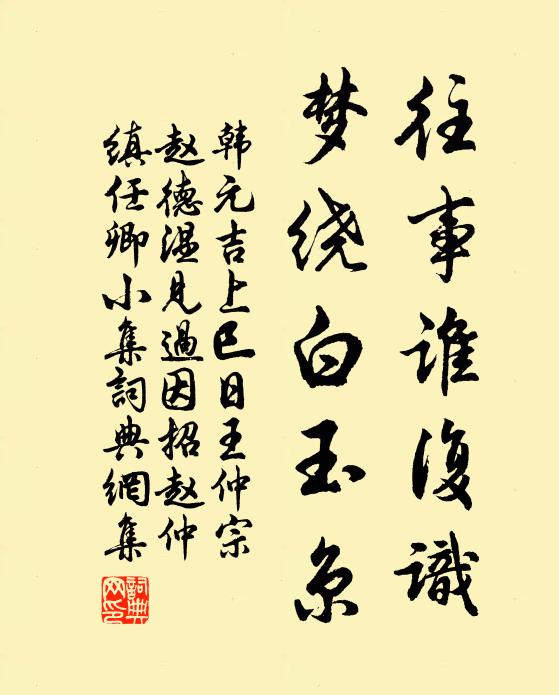 往事谁復識
梦绕白玉京
韩元吉上巳日王仲宗
赵德温見過因招赵仲
缜任卿小集詞典網集
詞典網印